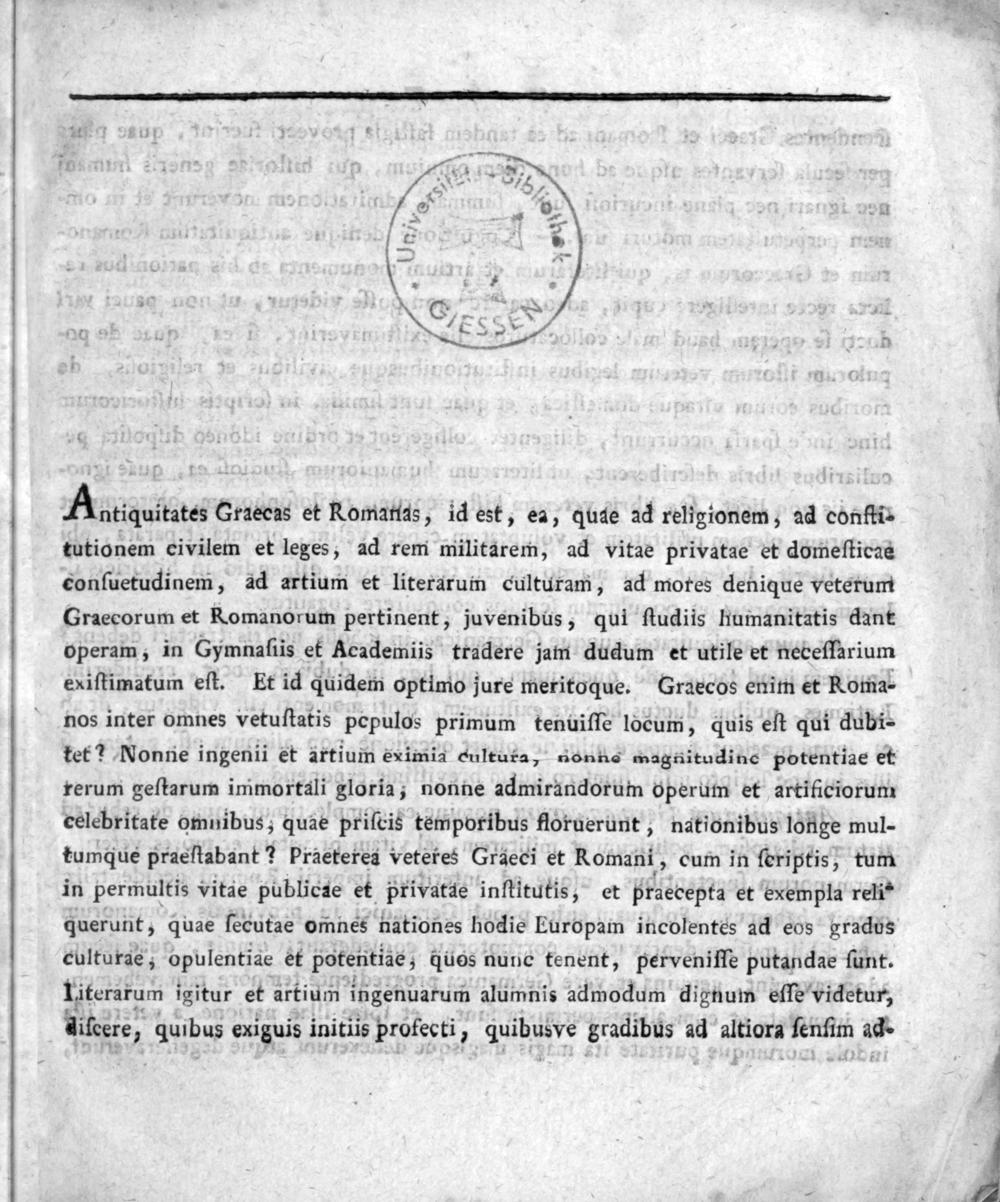 Universitäts-Bibliothek
GIESSEN
Antiquitates Graecas et Romanas, id est, ea, quae ad religionem, ad conſti-
tutionem civilem et leges, ad rem militarem, ad vitae privatae et domeſticae
conſuetudinem, ad artium et literarum culturam, ad mores denique veterum
Graecorum et Romanorum pertinent, juvenibus, qui ſtudiis humanitatis dant
operam, in Gymnaſiis et Academiis tradere jam dudum et utile et neceſſarium
exiſtimatum eſt. Et id quidem optimo jure meritoque. Graecos enim et Roma-
nos inter omnes vetuſtatis populos primum tenuiſſe locum, quis eſt qui dubi-
tet? Nonne ingenii et artium eximia cultura, nonne magnitudine potentiae et
rerum geſtarum immortali gloria, nonne admirandorum operum et artificiorum
celebritate omnibus, quae priſcis temporibus floruerunt, nationibus longe mul-
tumque praeſtabant? Praeterea veteres Graeci et Romani, cum in ſcriptis, tum
in permultis vitae publicae et privatae inſtitutis, et praecepta et exempla reli-
querunt, quae ſecutae omnes nationes hodie Europam incolentes ad eos gradus
culturae, opulentiae et potentiae, quos nunc tenent, perveniſſe putandae ſunt.
Literarum igitur et artium ingenuarum alumnis admodum dignum eſſe videtur,
diſcere, quibus exiguis initiis profecti, quibusve gradibus ad altiora ſenſim ad-